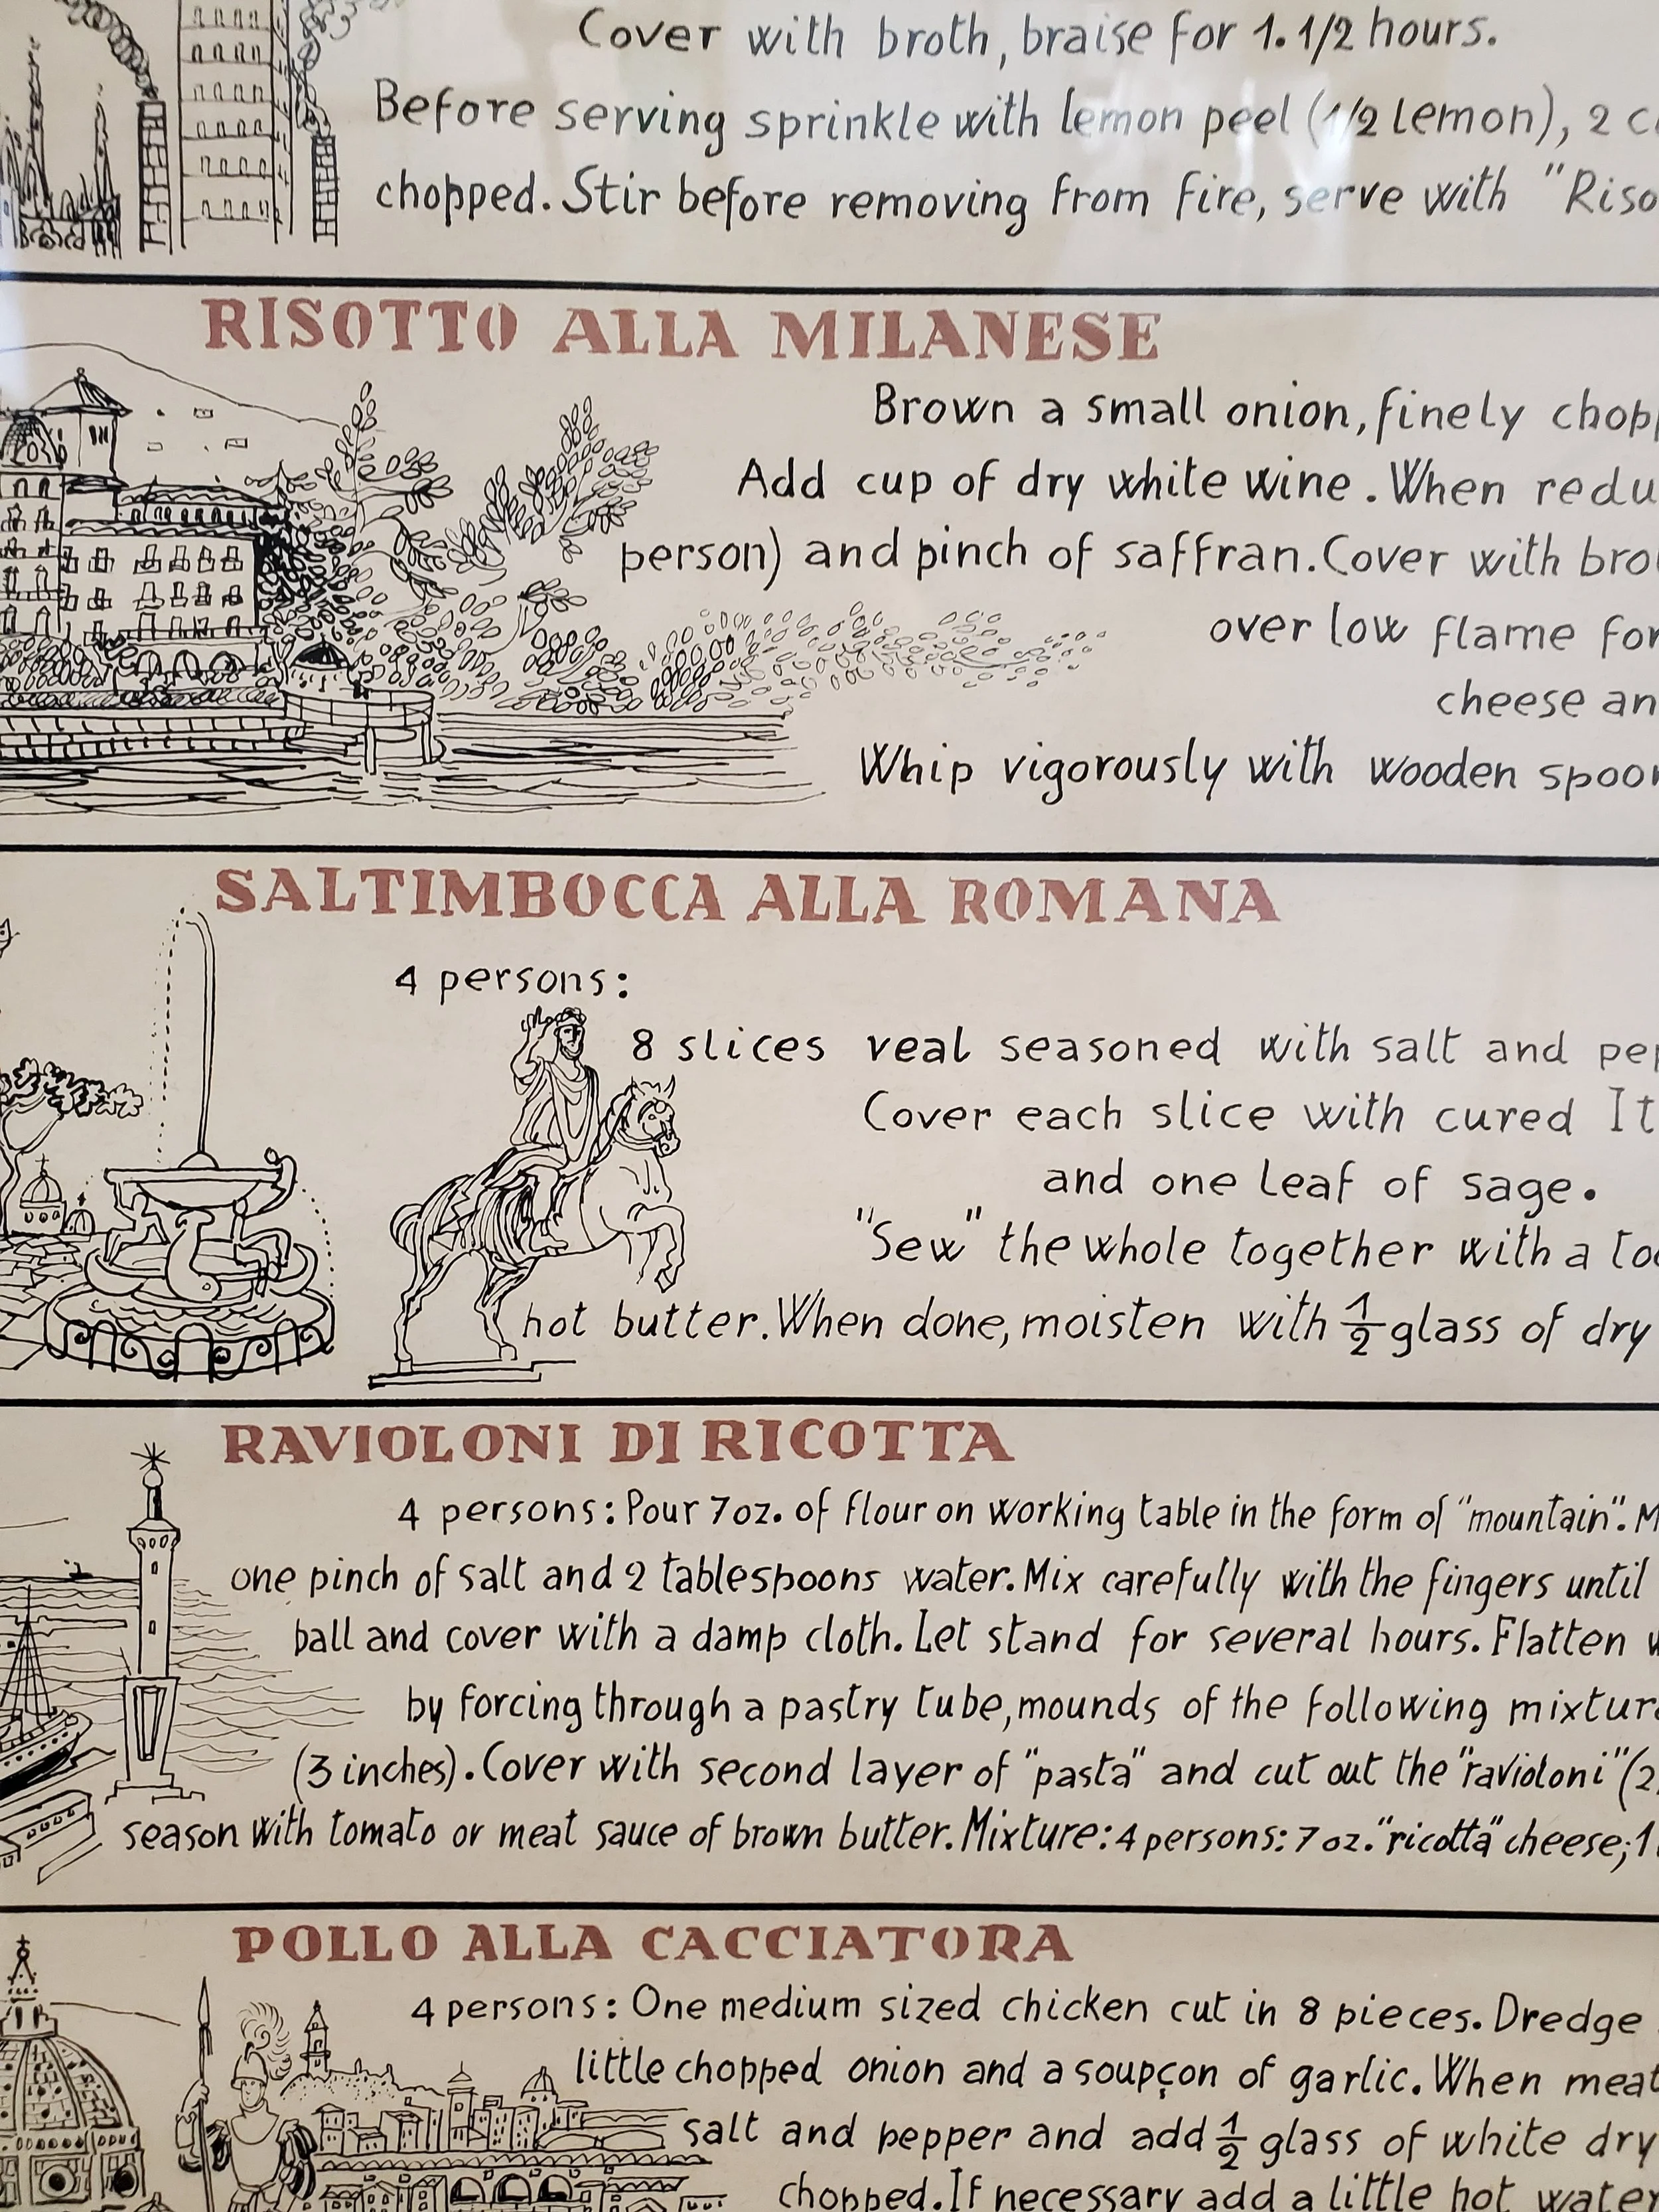 Cover with broth, braise for 1.1/2 hours.
Before serving sprinkle with lemon peel (1/2 lemon), 2
chopped. Stir before removing from fire, serve with "Riso
RISOTTO ALLA MILANESE
Brown a small onion, finely chop
Add cup of dry white wine. When redu
person) and pinch of saffran. Cover with bro
over low flame for
cheese an
Whip vigorously with wooden spoon
SALTIMBOCCA ALLA ROMANA
4 persons:
8 slices veal seasoned with salt and pep
Cover each slice with cured It
and one leaf of sage.
"Sew" the whole together with a to
hot butter. When done, moisten with 1/2 glass of dry
RAVIOLONI DI RICOTTA
4 persons: Pour 7 oz. of flour on working table in the form of "mountain". M
one pinch of salt and 2 tablespoons water. Mix carefully with the fingers until
ball and cover with a damp cloth. Let stand for several hours. Flatten w
by forcing through a pastry tube, mounds of the following mixture
(3 inches). Cover with second layer of "pasta" and cut out the "ravioloni" (2
season with tomato or meat sauce of brown butter. Mixture: 4 persons: 7 oz. "ricotta" cheese; 1
POLLO ALLA CACCIATORA
4 persons: One medium sized chicken cut in 8 pieces. Dredge
little chopped onion and a soupçon of garlic. When meat
salt and pepper and add 1/2 glass of white dry
chopped. If necessary add a little hot water